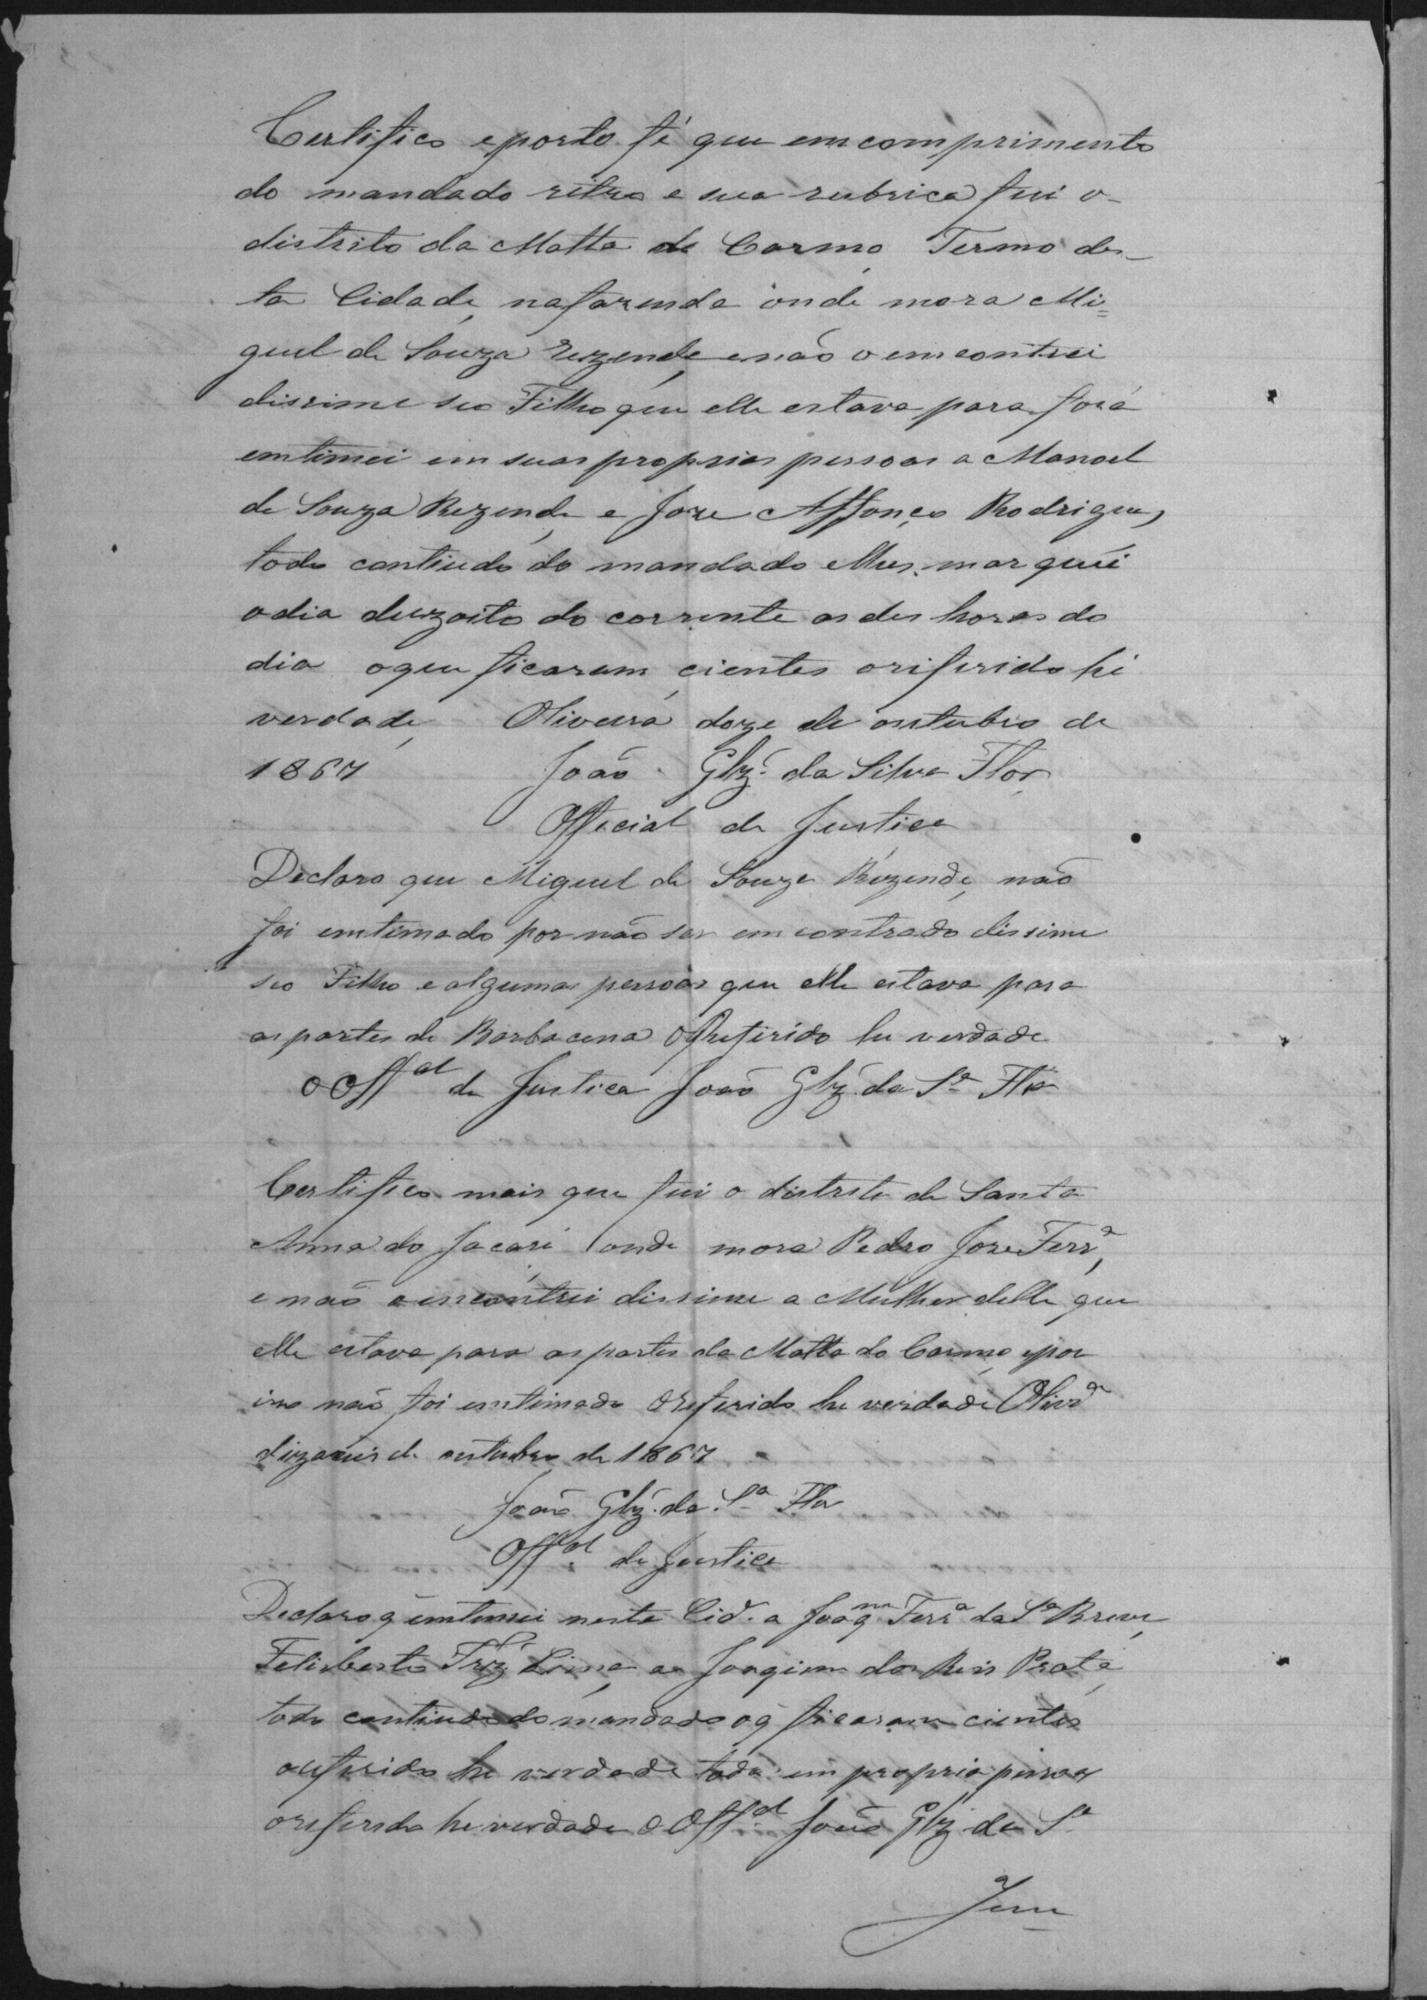 Certifico eporto fé que emcomprimento
do mandado retro e sua rubrica fui o
distrito da Matta do Carmo Termo des-
ta Cidade, nafazenda onde mora Mi=
guel de Souza Rezende, enão o emcontrei
dissime seo Filho que elle estava para fora
emtimei em suas proprias pessoas a Manoel
de Souza Rezende, e Joze Affonço Rodrigues,
todo contiudo do mandado elhes marquei
odia dezoito do corrente as des horas do
dia oque ficaram cientes oriferido hé
verdade, Oliveira doze de outubro de
1867 João Glz. da Silva Flor
Official de Justica
Declaro que Miguel de Souza Rezende, não
foi emtimado por não ser emcontrado dissime
seo Filho e algumas pessoas que elle estava para
as partes de Barbacena Oreferido he verdade
O Offal de Justica João Glz. da Sa Flor
Certifico mais que fui o distrito de Santa
Anna do Jacaré, onde mora Pedro Joze Ferra,
enão oencontrei dissime a Mulher delle que
elle estava para as partes da Matta do Carmo, epor
isso não foi emtimado Oreferido he verdade Olivra
dizaseis de outubro de 1867
João Glz. da Sa Flor
Offal de Justica
Declaro q̃ emtimei nesta Cide. a Joaqm Ferra da Sa Breves,
Felisberto Lima, ao Joaquim dos Reis Prata,
todo contiudo do mandado oq̃ ficaram cientes
oreferido he verdade todos em propria pessoa
oreferido he verdade O Offal João Glz da Sa